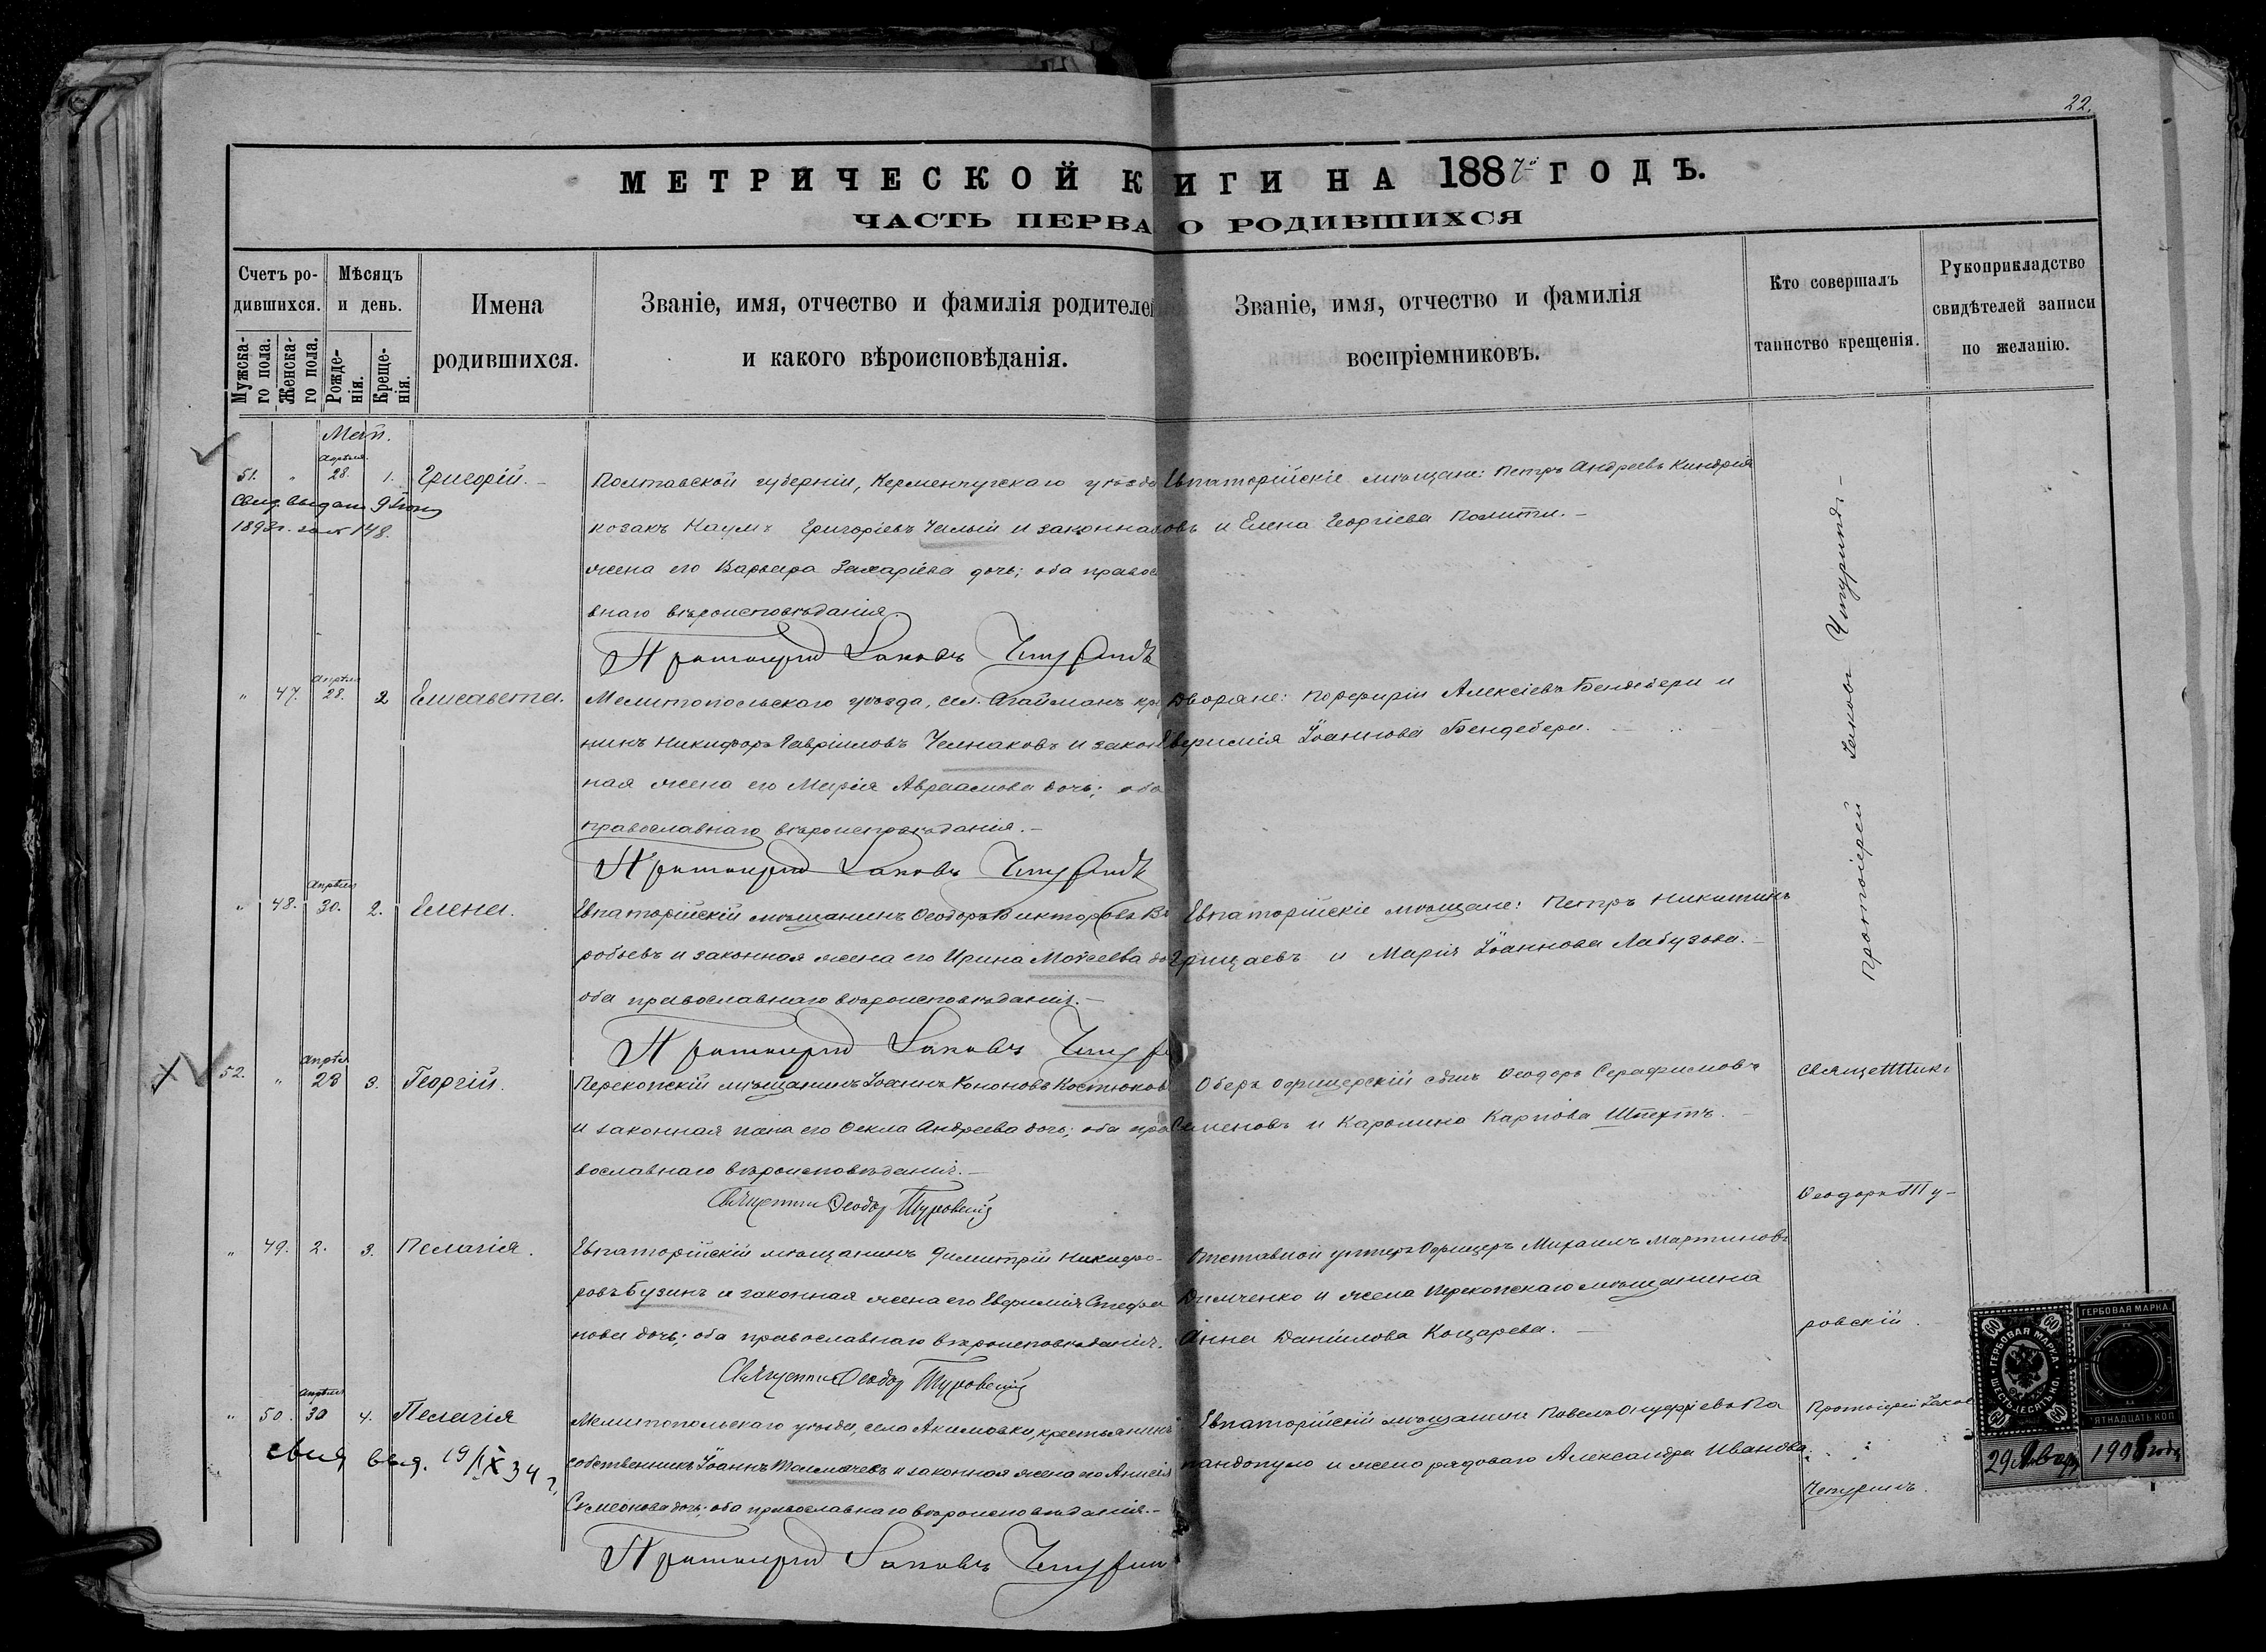 22.
МЕТРИЧЕСКОЙ К ИГИ НА 1887й ГОДЪ.
ЧАСТЬ ПЕРВА О РОДИВШИХСЯ
Счетъ ро-
дившихся.
Мужска-
го пола.
Женска-
го пола.
Мѣсяцъ
и день.
Рожде-
нія.
Креще-
нія.
Имена
родившихся.
Званіе, имя, отчество и фамилія родителей
и какого вѣроисповѣданія.
Званіе, имя, отчество и фамилія
воспріемниковъ.
Кто совершалъ
таинство крещенія.
Рукоприкладство
свидѣтелей записи
по желанію.
Май.
Апрѣля
51. " 28. 1. Григорій. –
Свид. выдано 9 Іюня
1893г. за № 148.
Полтавской губерніи, Керменчугскаго уѣзда
козакъ Наумъ Григоріевъ Чалый и законная
жена его Варвара Захаріева дочь; оба правос
внаго вѣроисповѣданія.
Протоіерей Іаковъ Чепуринъ
Евпаторійскіе мѣщане: Петръ Андреевъ Киндрія
овъ и Елена Георгіева Полити. –
Протоіерей Іаковъ Чепуринъ –
Апрѣля
" 47. 28. 2 Елисавета.
Мелитопольскаго уѣзда, сел. Агайманъ кре
нинъ Никифоръ Гавріиловъ Челнаковъ и закон
ная жена его Марія Авраамова дочь; оба
православнаго вѣроисповѣданія. –
Протоіерей Іаковъ Чепуринъ
Дворяне: Порфирій Алексіевъ Бендебери и
Евфимія Іоаннова Бендебери. –
Апрѣля
" 48. 30. 2. Елена.
Евпаторійскій мѣщанинъ Ѳеодоръ Викторовъ Во
робьевъ и законная жена его Ирина Моѵсеева до
оба православнаго вѣроисповѣданія. –
Протоіерей Іаковъ Чепур
Евпаторійскіе мѣщане: Петръ Никитинъ
Грицаевъ и Марія Іоаннова Лабузова. –
Апрѣля
52. " 23 3. Георгій.
Перекопскій мѣщанинъ Іоаннъ Кононовъ Костюков
и законная жена его Ѳекла Андреева дочь; оба пра
вославнаго вѣроисповѣданія. –
Священникъ Ѳеодоръ Туровскій
Оберъ офицерскій сынъ Ѳеодоръ Серафимовъ
Семеновъ и Каролина Карпова Штехтъ. –
Священникъ
Ѳеодоръ Ту-
ровскій.
" 49. 2. 3. Пелагія.
Евпаторійскій мѣщанинъ Димитрій Никифо-
ровъ Бузинъ и законная жена его Евфимія Стефа
нова дочь; оба православнаго вѣроисповѣданія.
Священникъ Ѳеодоръ Туровскій
Отставной унтеръ Офицеръ Михаилъ Мартиновъ
Димченко и жена Перекопскаго мѣщанина
Анна Даніилова Коцарева. –
Апрѣля
" 50. 30 4. Пелагія
свид выд. 19/IX 34 г.
Мелитопольскаго уѣзда, села Акимовки, крестьянинъ
собственникъ Іоаннъ Толмачевъ и законная жена его Анисія
Симеонова дочь; оба православнаго вѣроисповѣданія. –
Протоіерей Іаковъ Чепурин
Евпаторійскій мѣщанинъ Павелъ Онуфріевъ Па
пандопуло и жена рядового Александра Иванова.
Протоіерей Іаков
Чепуринъ.
ГЕРБОВАЯ МАРКА
ШЕСТЬДЕСЯТЪ КОП.
60 60 60 60
ГЕРБОВАЯ МАРКА
ПЯТНАДЦАТЬ КОП
29 Январ 1908 года